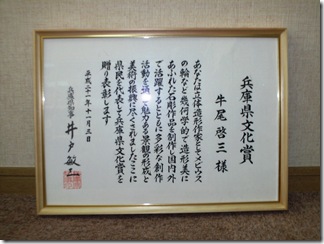 兵庫県文化賞
牛尾啓三様
あなたは立体造形作家としてメビウス
の輪など幾何学的で造形美に
あふれた石彫作品を制作し国内外
で活躍するとともに多彩な創作
活動を通して魅力ある景観の形成と
美術の振興に尽くされましたここに
県民を代表して兵庫県文化賞を
贈り表彰します
平成二十一年十一月三日
兵庫県知事 井戸敏三